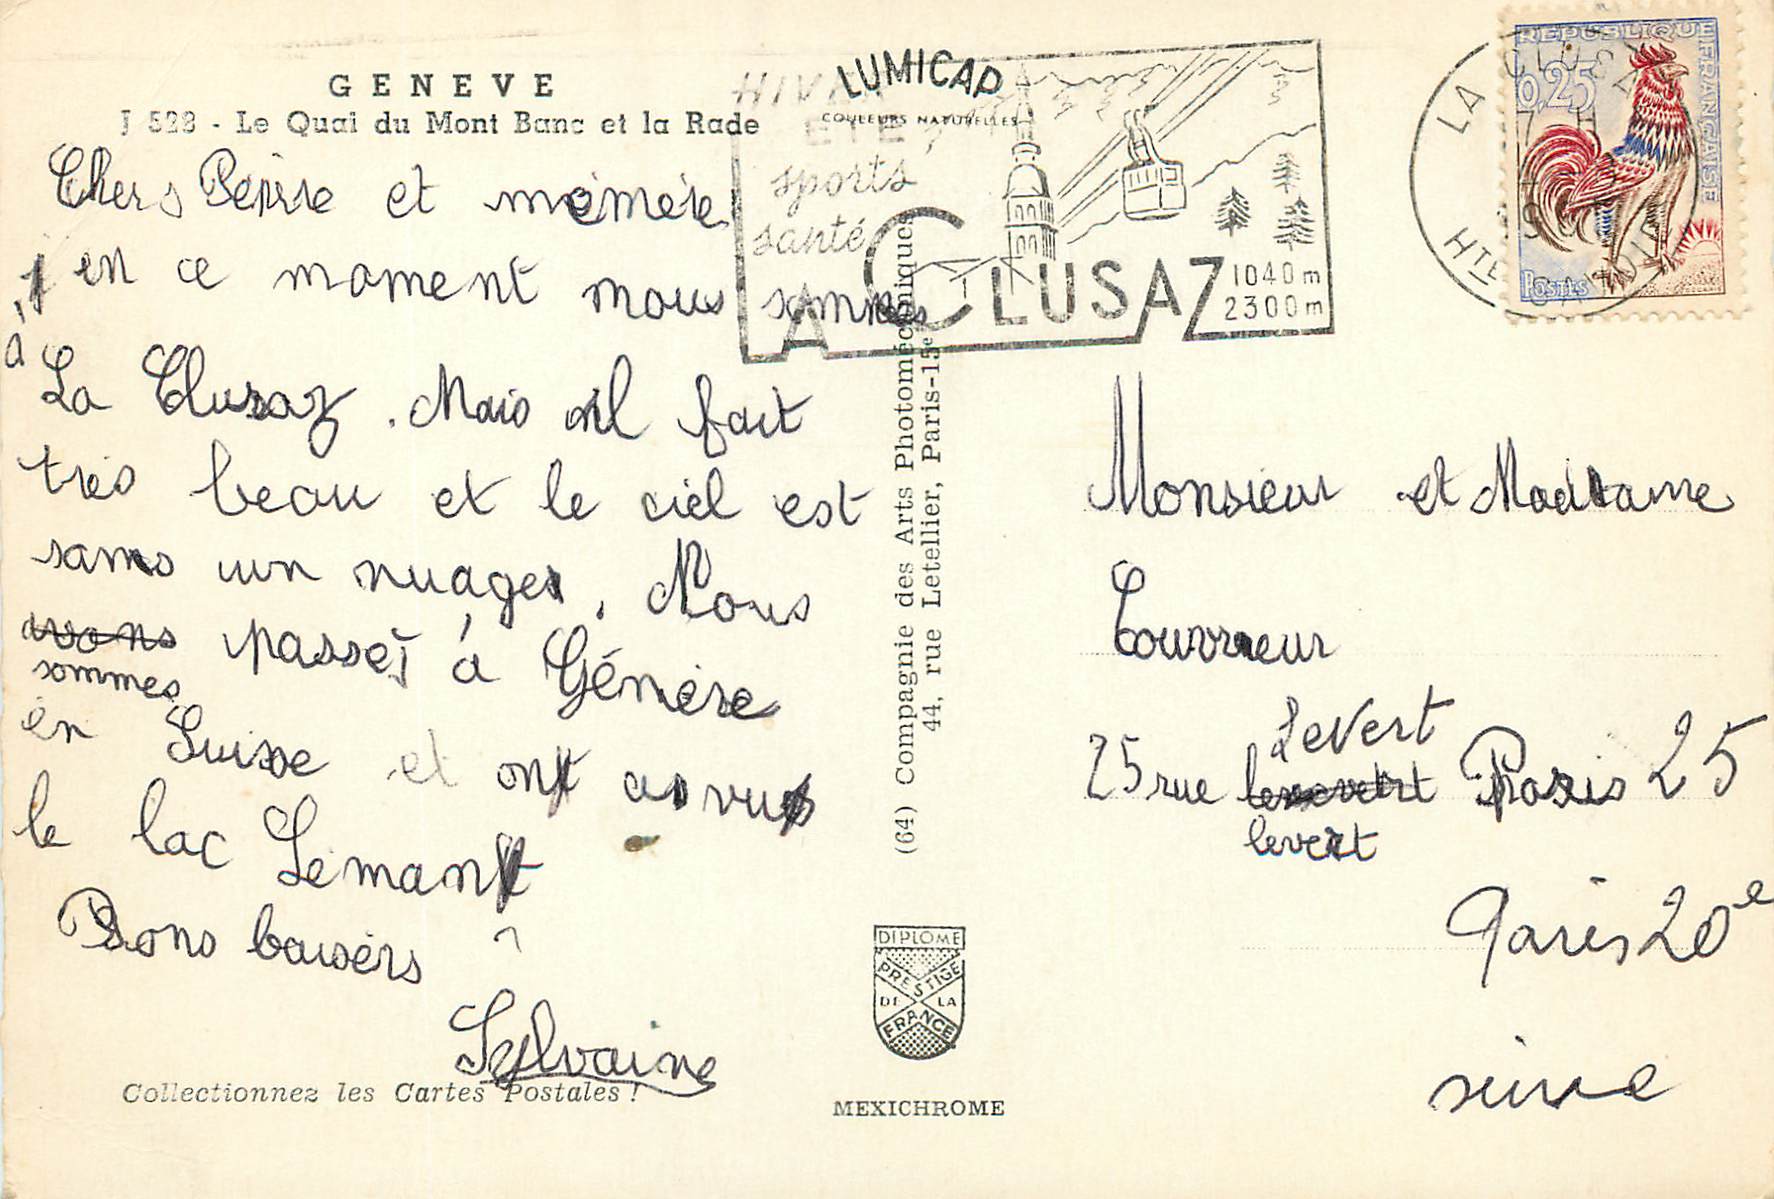 GENEVE
J 528 - Le Quai du Mont Banc et la Rade
Chers Pépère et mémère
en ce moment nous sommes
à
La Clusaz. Mais il fait
très beau et le ciel est
sans un nuage. Nous
avons passés à Génève
sommes
en Suisse et ont a vu
le lac Léman
Bons baisers
Sylvaine
Collectionnez les Cartes Postales !
LUMICAP
COULEURS NATURELLES
HIVER
ETE
sports
santé
LA CLUSAZ
1040 m
2300 m
(64) Compagnie des Arts Photomécaniques
44, rue Letellier, Paris-15e
DIPLOME
PRESTIGE
DE LA
FRANCE
MEXICHROME
LA CLUSAZ
HTE SAVOIE
REPUBLIQUE FRANÇAISE
0,25
POSTES
Monsieur et Madame
Couvreur
Levert
25 rue Paris 25
levert
Paris 20e
seine